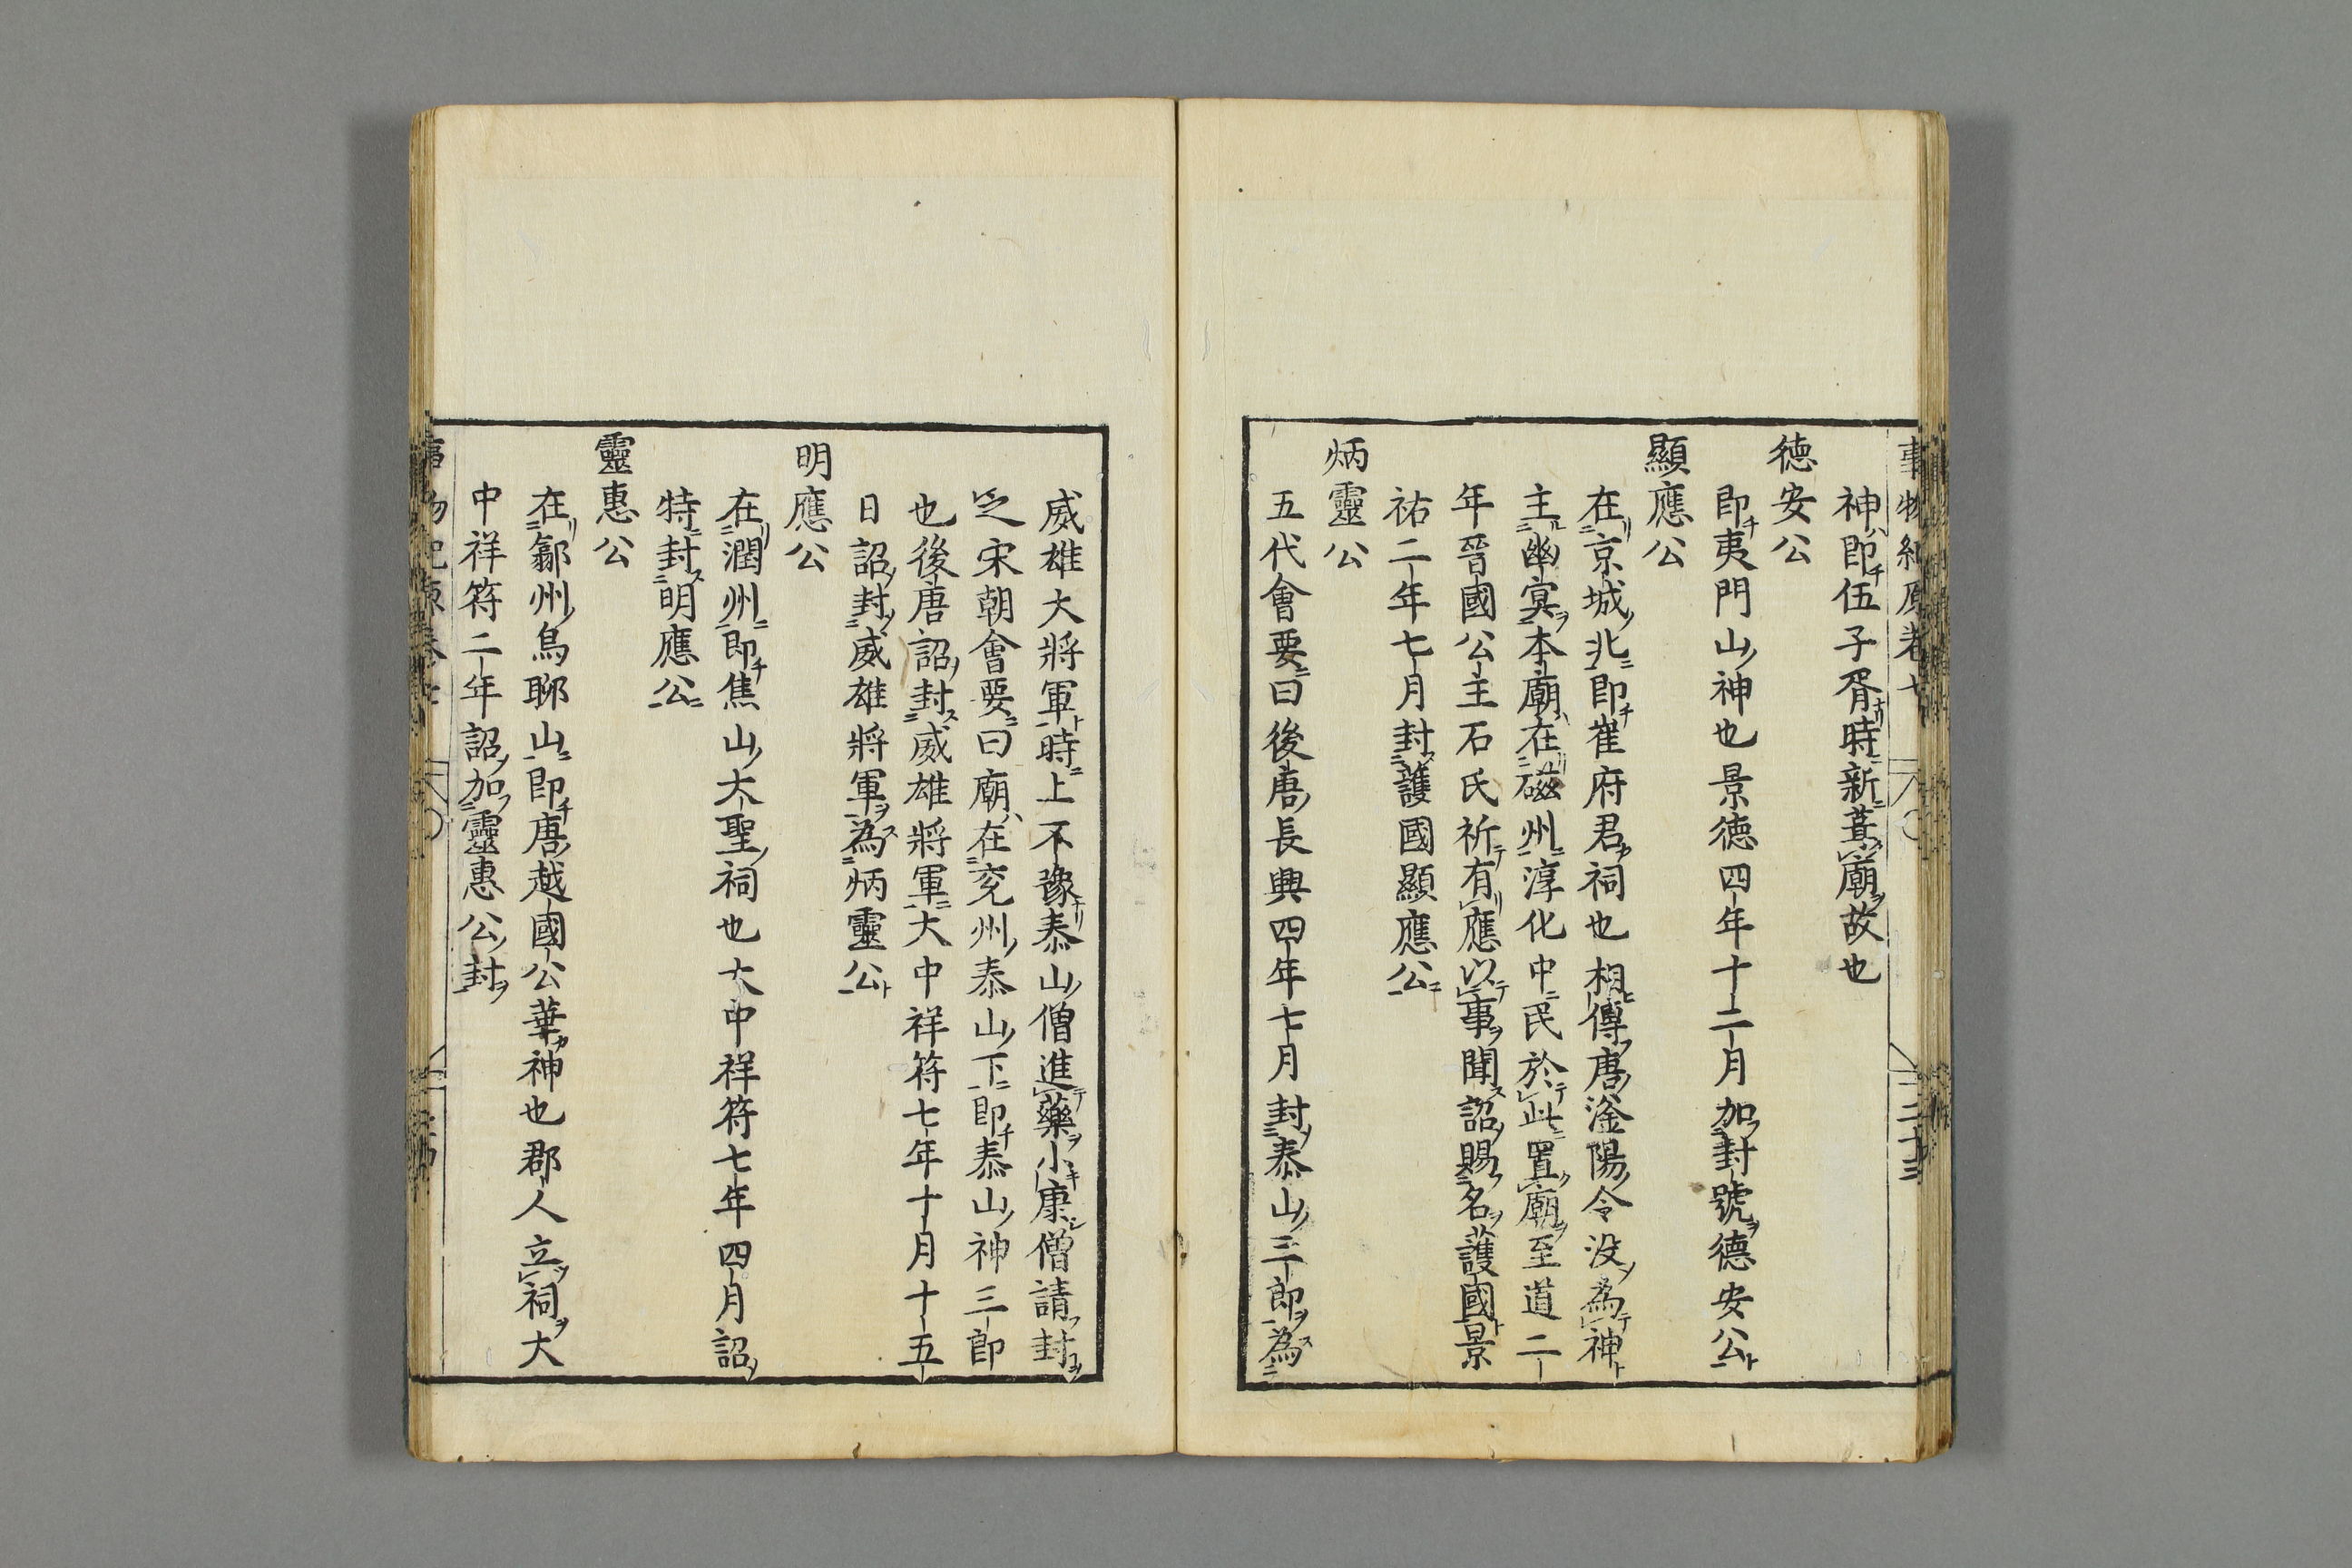 神即伍子胥時新葺廟故也
德安公
即夷門山神也景德四年十二月加封號德安公
顯應公
在京城北即崔府君祠也相傳唐滏陽令没為神
主幽冥本廟在磁州淳化中民於此置廟至道二
年晉國公主石氏祈有應以事聞詔賜名護國景
祐二年七月封護國顯應公
炳靈公
五代會要曰後唐長興四年七月封泰山三郎為
威雄大將軍時上不豫泰山僧進藥小康僧請封
之宋朝會要曰廟在兖州泰山下即泰山神三郎
也後唐詔封威雄將軍大中祥符七年十月十五
日詔封威雄將軍為炳靈公
明應公
在潤州即焦山大聖祠也大中祥符七年四月詔
特封明應公
靈惠公
在鄒州烏聊山即唐越國公華神也郡人立祠大
中祥符二年詔加靈惠公封